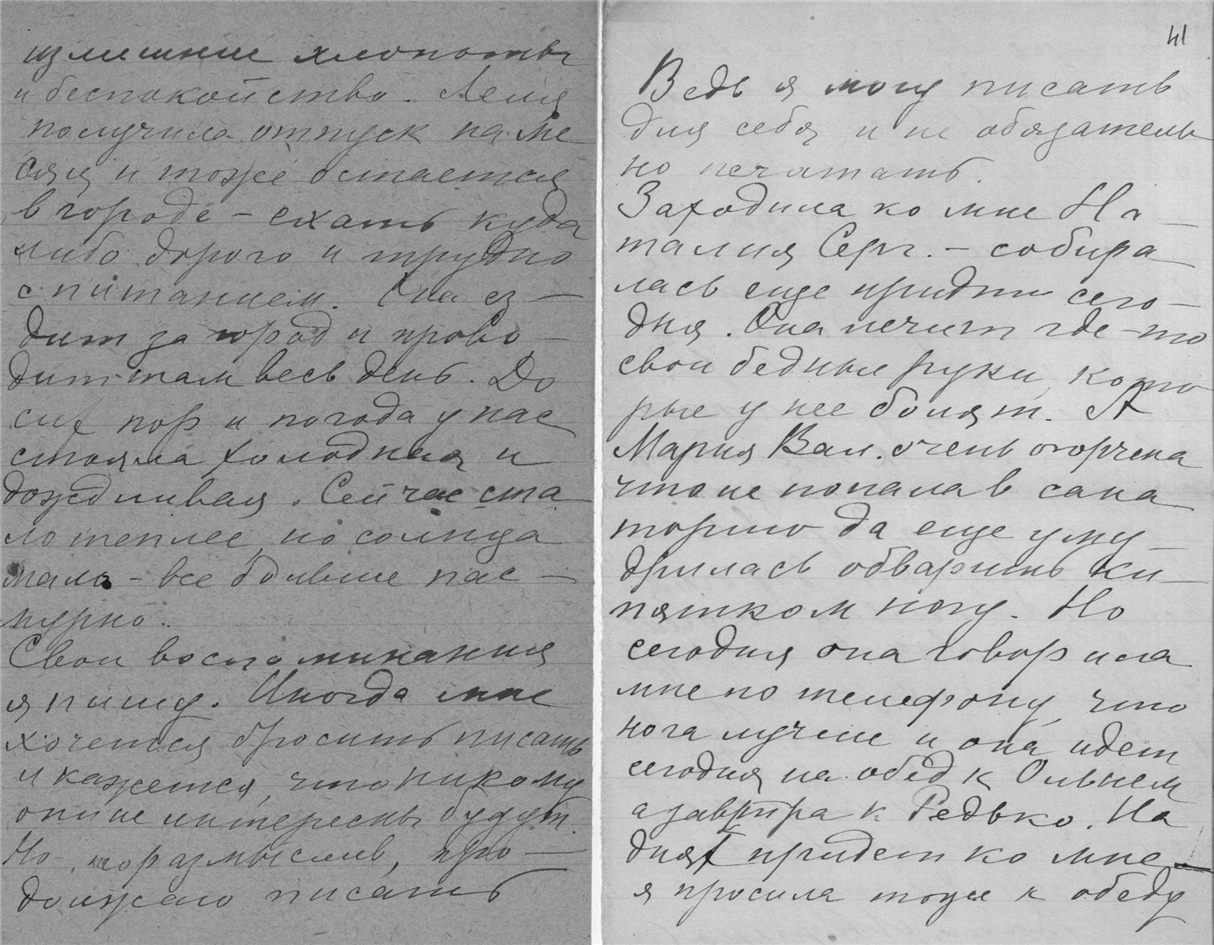 излишние хлопоты
и беспокойство. Леля
получила отпуск на ме
сяц и тоже остается
в городе – ехать куда
либо дорого и трудно
с питанием. Она ез –
дит за город и прово –
дит там весь день. До
сих пор и погода у нас
стояла холодная и
дождливая. Сейчас ста
ло теплее, но солнца
мало – все больше пас –
мурно.
Свои воспоминания
я пишу. Иногда мне
хочется бросить писать
и кажется, что никому
они не интересны будут.
Но, поразмыслив, про –
должаю писать
41
Ведь я могу писать
для себя и не обязатель
но печатать.
Заходила ко мне На –
талия Серг. – собира
лась еще придти сего –
дня. Она лечит где-то
свои бедные руки, кото
рые у нее болят. А
Мария Вал. очень огорчена
что не попала в сана
торию да еще уму –
дрилась обварить ки –
пятком ногу. Но
сегодня она говорила
мне по телефону, что
нога лучше и она идет
сегодня на обед к Ольнем
а завтра к Редько. На
днях придет ко мне –
я просила тоже к обеду